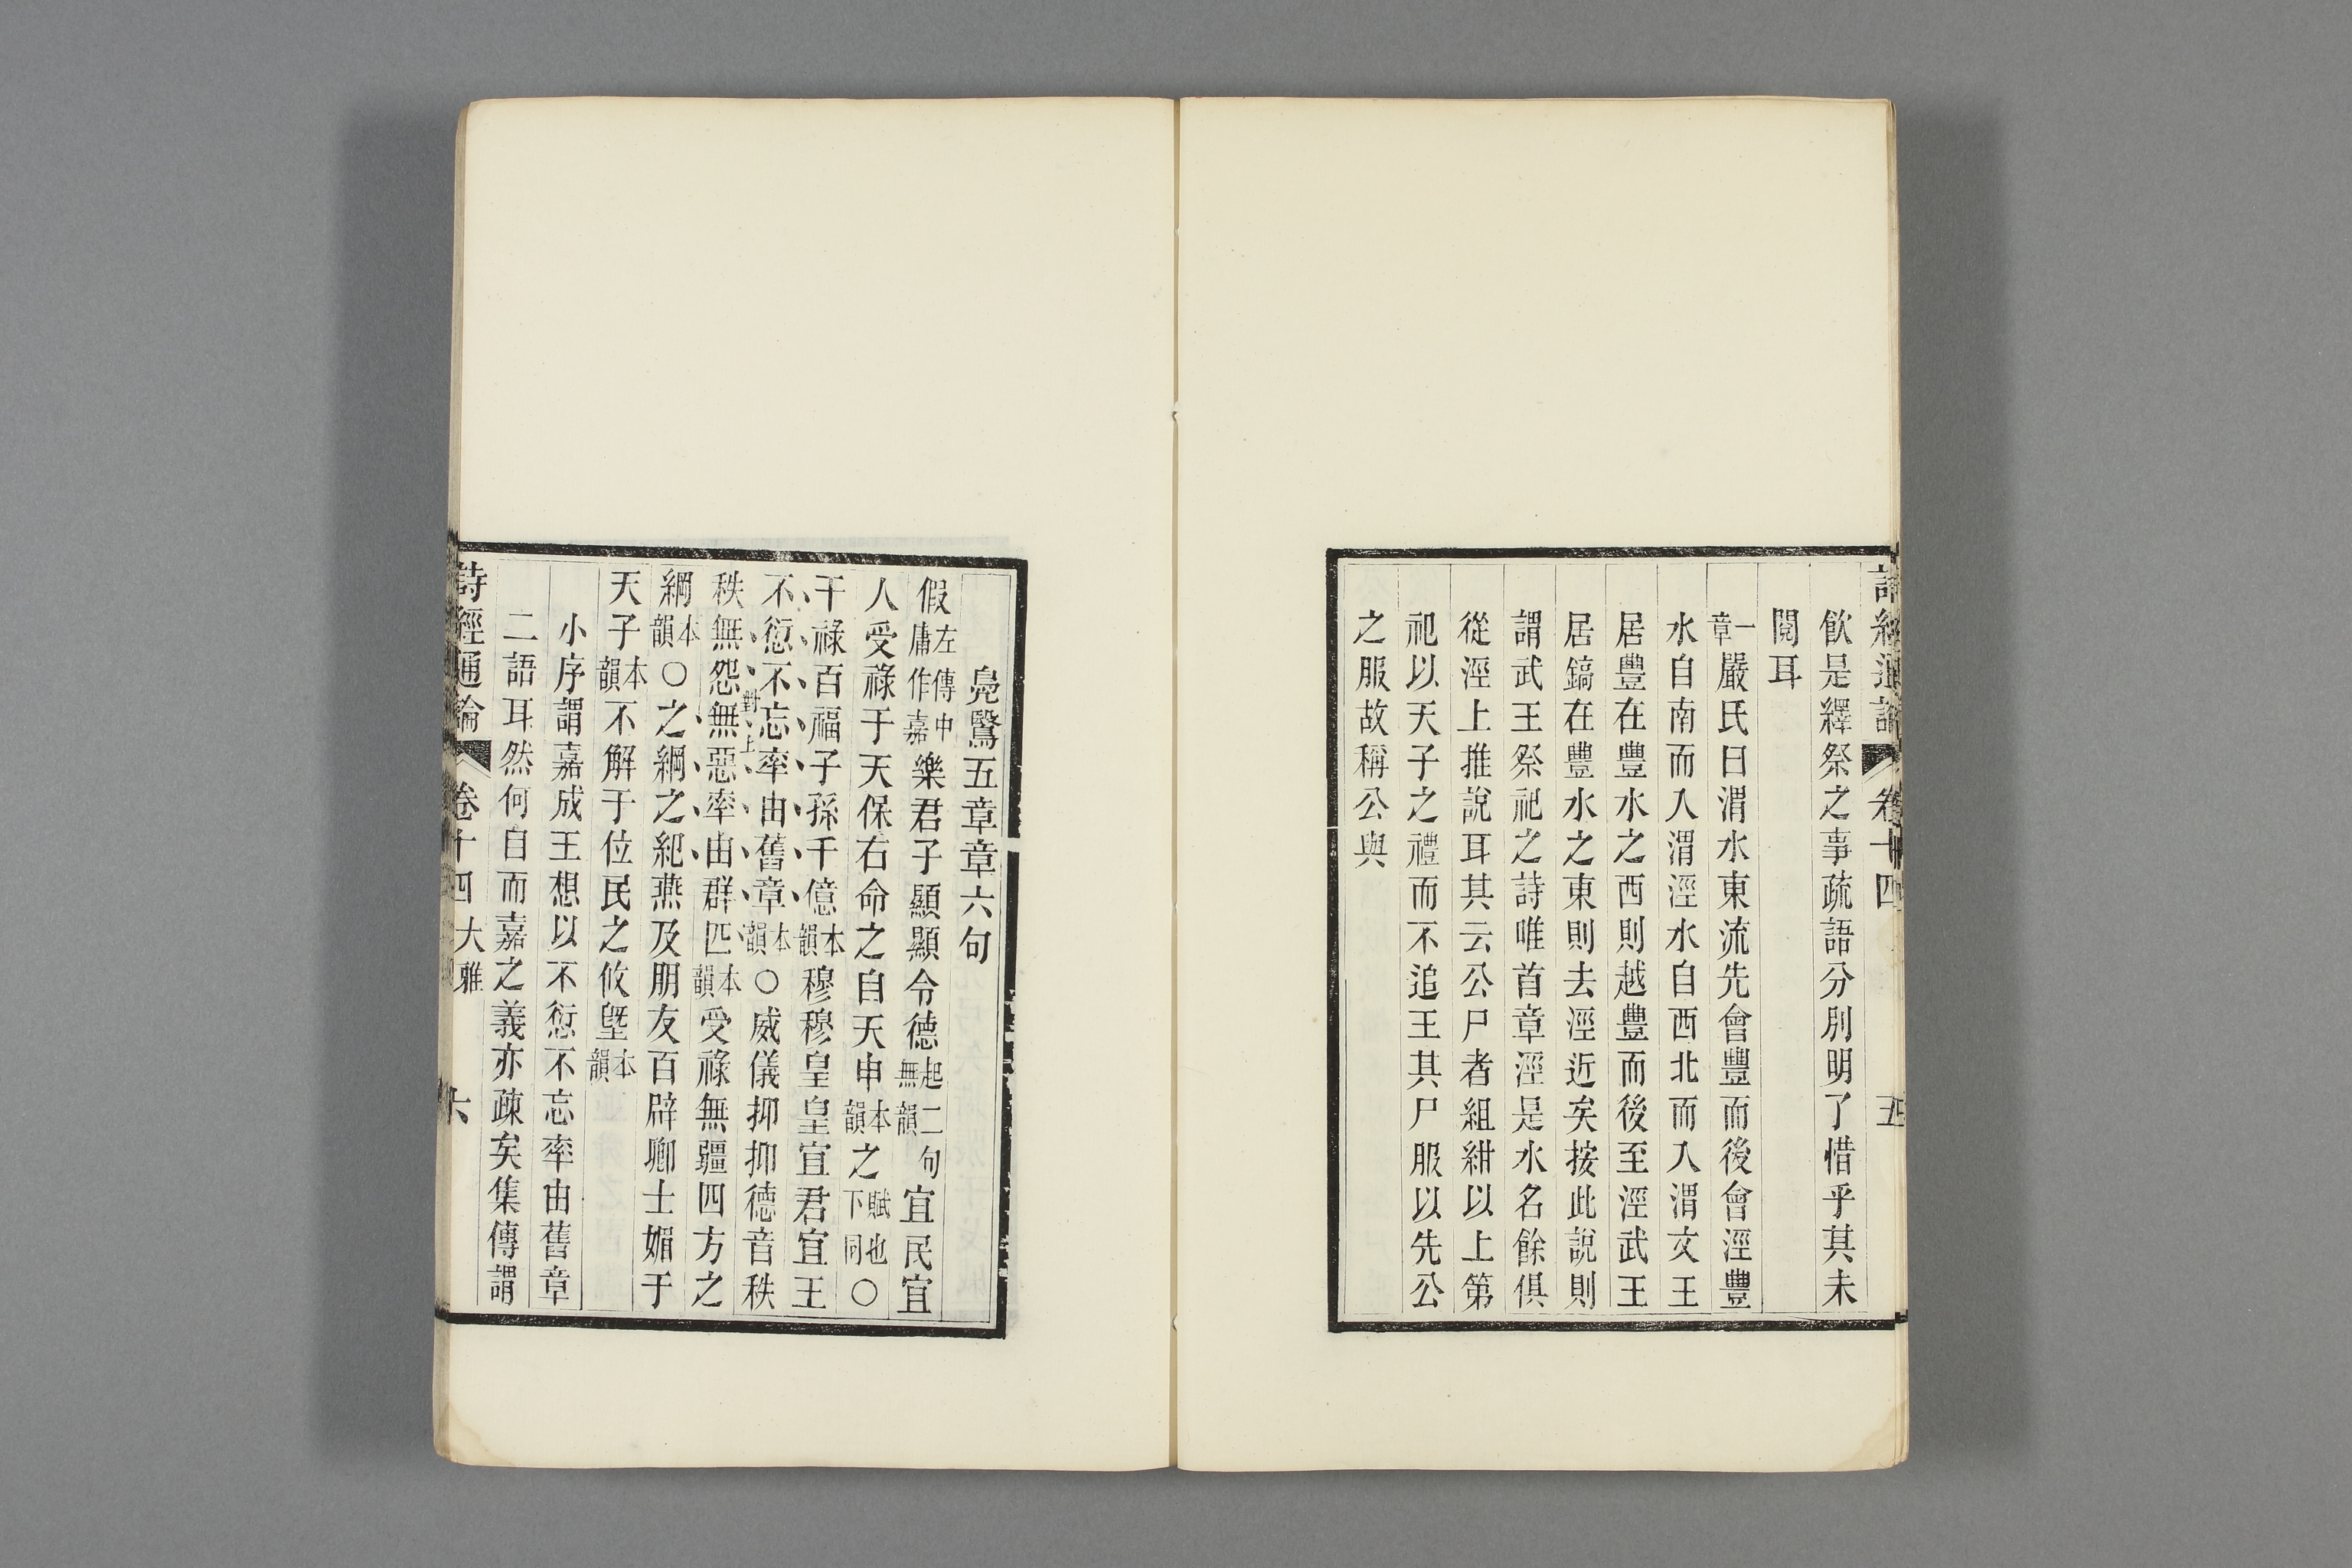 詩經通論 卷十四 五
飲是繹祭之事疏語分別明了惜乎其未
閱耳
一章嚴氏曰渭水東流先會豐而後會涇豐
水自南而入渭涇水自西北而入渭文王
居豐在豐水之西則越豐而後至涇武王
居鎬在豐水之東則去涇近矣按此說則
謂武王祭祀之詩唯首章涇是水名餘俱
從涇上推說耳其云公尸者組紺以上第
祀以天子之禮而不追王其尸服以先公
之服故稱公與
鳧鷖五章章六句
假左傳中庸作嘉樂君子顯顯令德起二句無韻宜民宜
人受祿于天保右命之自天申本韻之賦也下同○
干祿百福子孫千億本韻穆穆皇皇宜君宜王
不愆不忘率由舊章本韻○威儀抑抑德音秩
對上
秩無怨無惡率由群匹本韻受祿無疆四方之
綱本韻○之綱之紀燕及朋友百辟卿士媚于
天子本韻不解于位民之攸塈本韻
小序謂嘉成王想以不愆不忘率由舊章
二語耳然何自而嘉之義亦疎矣集傳謂
詩經通論 卷十四 大雅 六